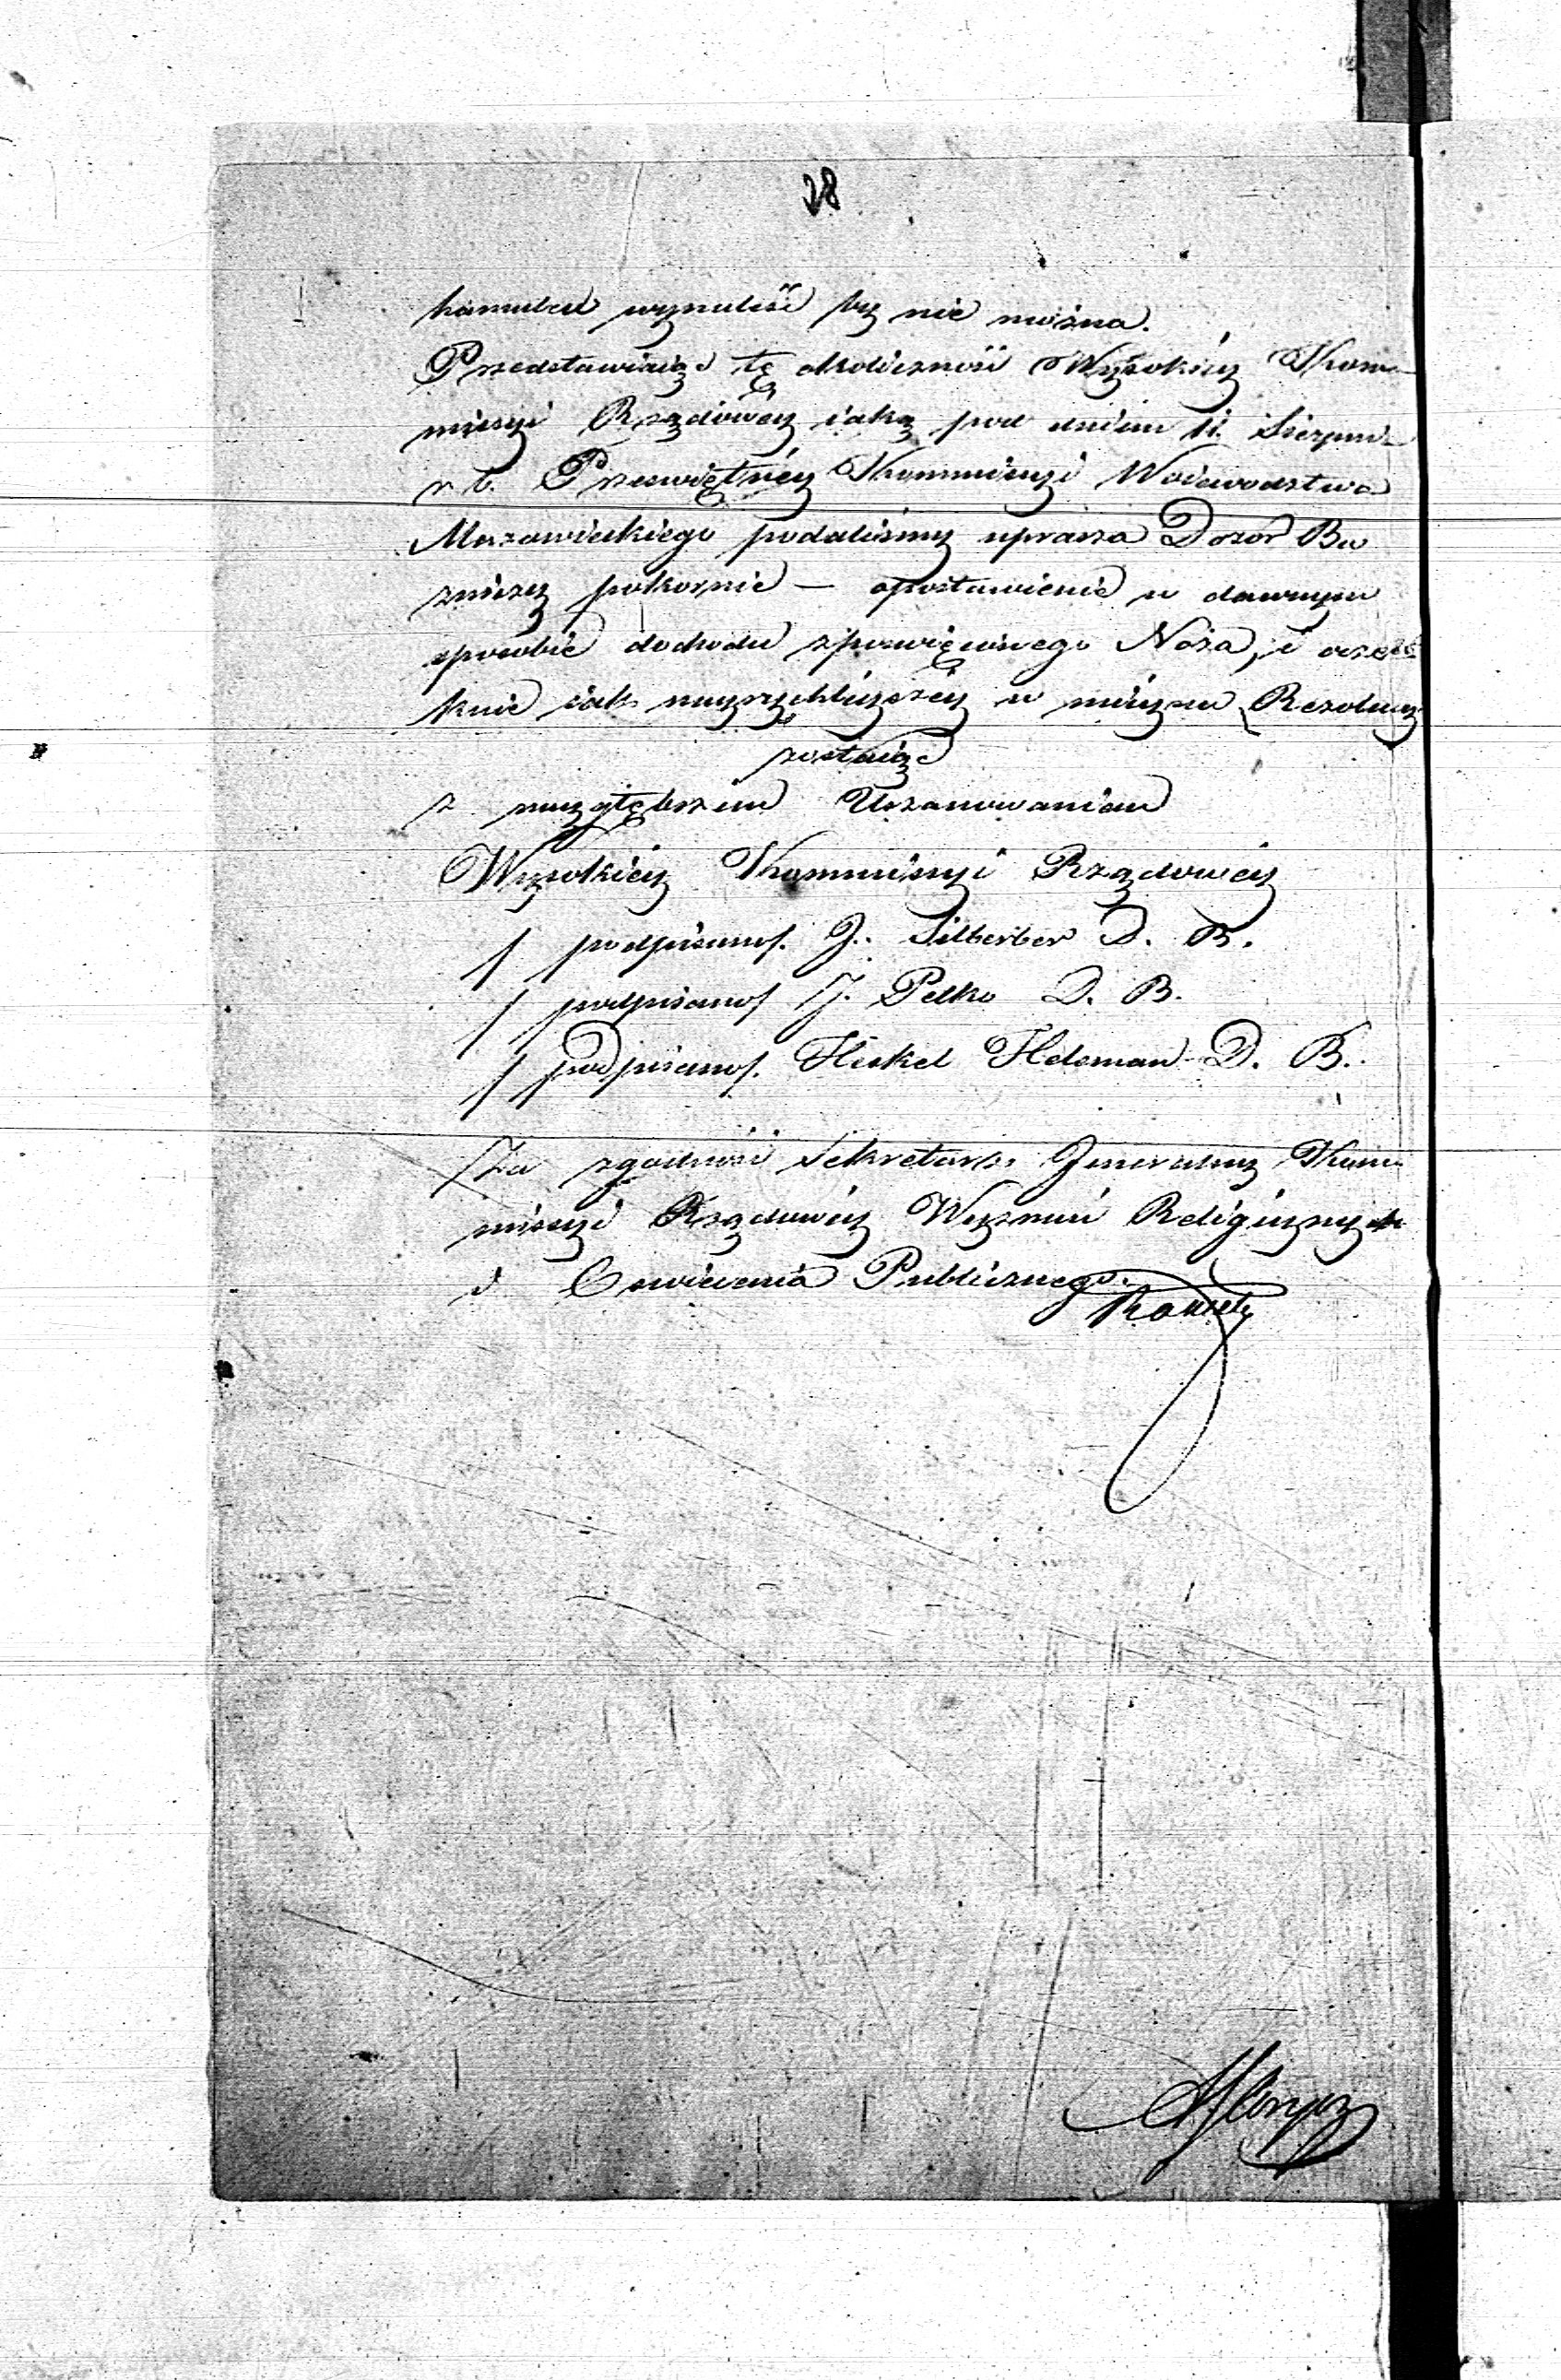 28
wynaleść by nie można.
Przedstawiaiąc tę okoliczność Wysokiey Kom-
missyi Rządowey iaką pod dniem 11. Sierpni-
r. b. Prześwietney Kommissyi Woiewodztwa
Mazowieckiego podaliśmy uprasza Dozor Bo
zniczy pokornie — opostawienie w dawnym
sposobie dochodu zposwięconego Noża, i ocze
kuie iak nayrychleyszey w mieyscu Rezolucyi
zostaiąc
z naygłębszem Uszanowaniem
Wysokiey Kommissyi Rządowey
/ podpisano/. J. Silberber D. B.
/ podpisano/ J. Pelko D. B.
/ podpisano/. Heskel Helsman D. B.
Za zgodność Sekretarz Jeneralny Kom
missyi Rządowey Wyznań Religiynych
i Oswiecenia Publicznego.